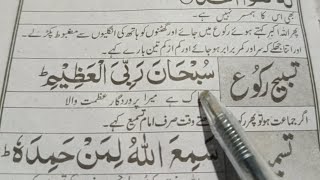 بھی اس کا ہمسر نہیں ہے۔
پھر اللہ اکبر کہتے ہوئے رکوع میں جائے اور گھٹنوں کو ہاتھ کی انگلیوں سے مضبوط پکڑ لے۔
اور اتنا جھکے کہ سر اور کمر برابر ہو جائے اور کم از کم تین بار یہ کہے۔
تسبیح رکوع سُبْحَانَ رَبِّیَ الْعَظِیْمِ ط
پاک ہے میرا پروردگار عظمت والا
اگر جماعت ہو تو پھر رکوع وقت صرف امام تسمیع کہے۔
سَمِعَ اللّٰہُ لِمَنْ حَمِدَہٗ ط